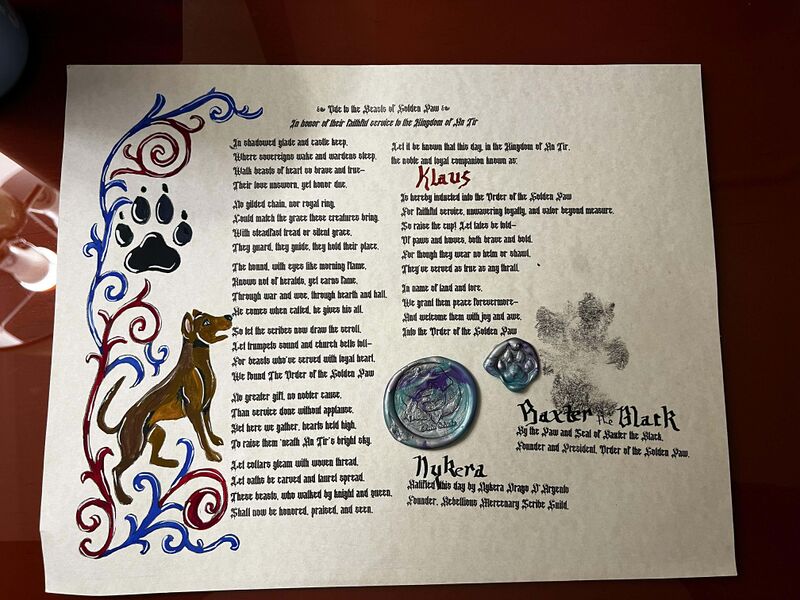 Ode to the Beasts of Golden Paw
In honor of their faithful service to the Kingdom of An Tir
In shadowed glade and castle keep,
Where sovereigns wake and wardens sleep,
Walk beasts of heart so brave and true—
Their love unsworn, yet honor due.
No gilded chain, nor royal ring,
Could match the grace these creatures bring.
With steadfast tread or silent grace,
They guard, they guide, they hold their place.
The hound, with eyes like morning flame,
Knows not of heralds, yet earns fame,
Through war and woe, through hearth and hall,
He comes when called, he gives his all.
So let the scribes now draw the scroll,
Let trumpets sound and church bells toll—
For beasts who've served with loyal heart,
We found The Order of the Golden Paw
No greater gift, no nobler cause,
Than service done without applause,
Yet here we gather, hearts held high,
To raise them 'neath An Tir's bright sky.
Let collars gleam with woven thread,
Let oaths be carved and laurel spread,
These beasts, who walked by knight and queen,
Shall now be honored, praised, and seen.
Let it be known that this day, in the Kingdom of An Tir,
the noble and loyal companion known as:
Klaus
Is hereby inducted into the Order of the Golden Paw
For faithful service, unwavering loyalty, and valor beyond measure.
So raise the cup! Let tales be told—
Of paws and hooves, both brave and bold.
For though they wear no helm or shawl,
They've served as true as any thrall.
In name of land and lore,
We grant them peace forevermore—
And welcome them with joy and awe,
Into the Order of the Golden Paw
Baxter the Black
By the Paw and Seal of Baxter the Black,
Founder and President, Order of the Golden Paw.
Nykera
Ratified this day by Nykera Drago D'Argento
Founder, Rebellious Mercenary Scribe Guild.